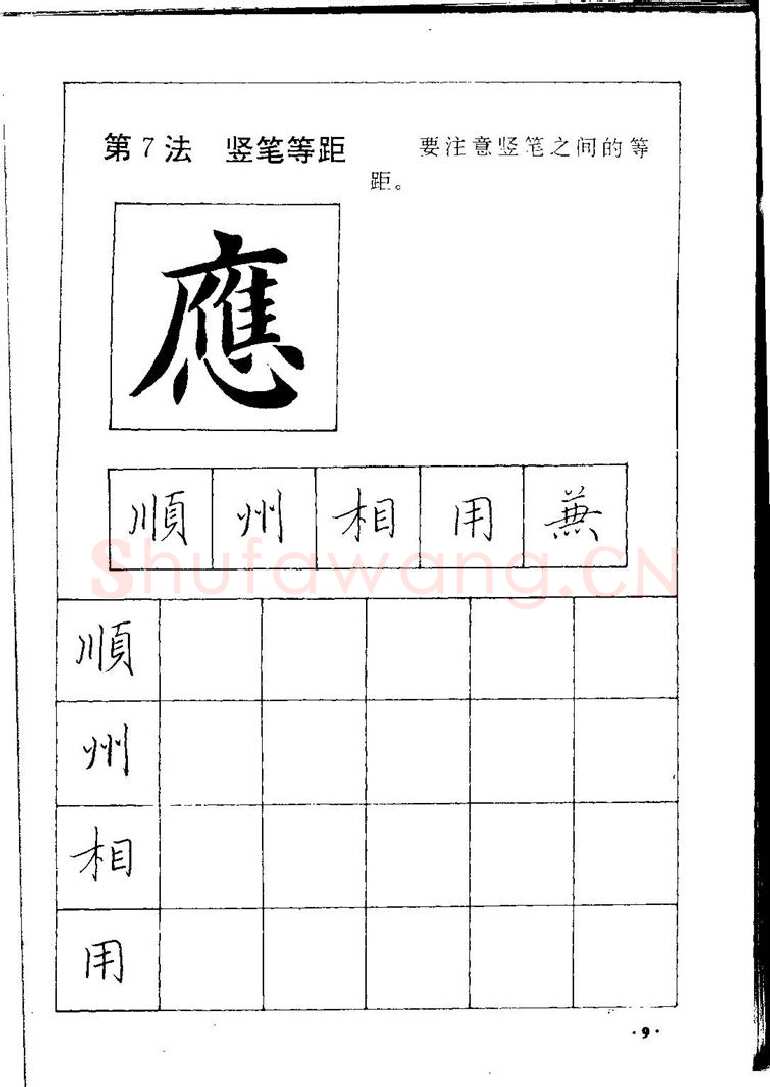 第7法 竖笔等距 要注意竖笔之间的等
距。
應
順 州 相 用 蕪
Shufawang.CN
順
州
相
用
·9·